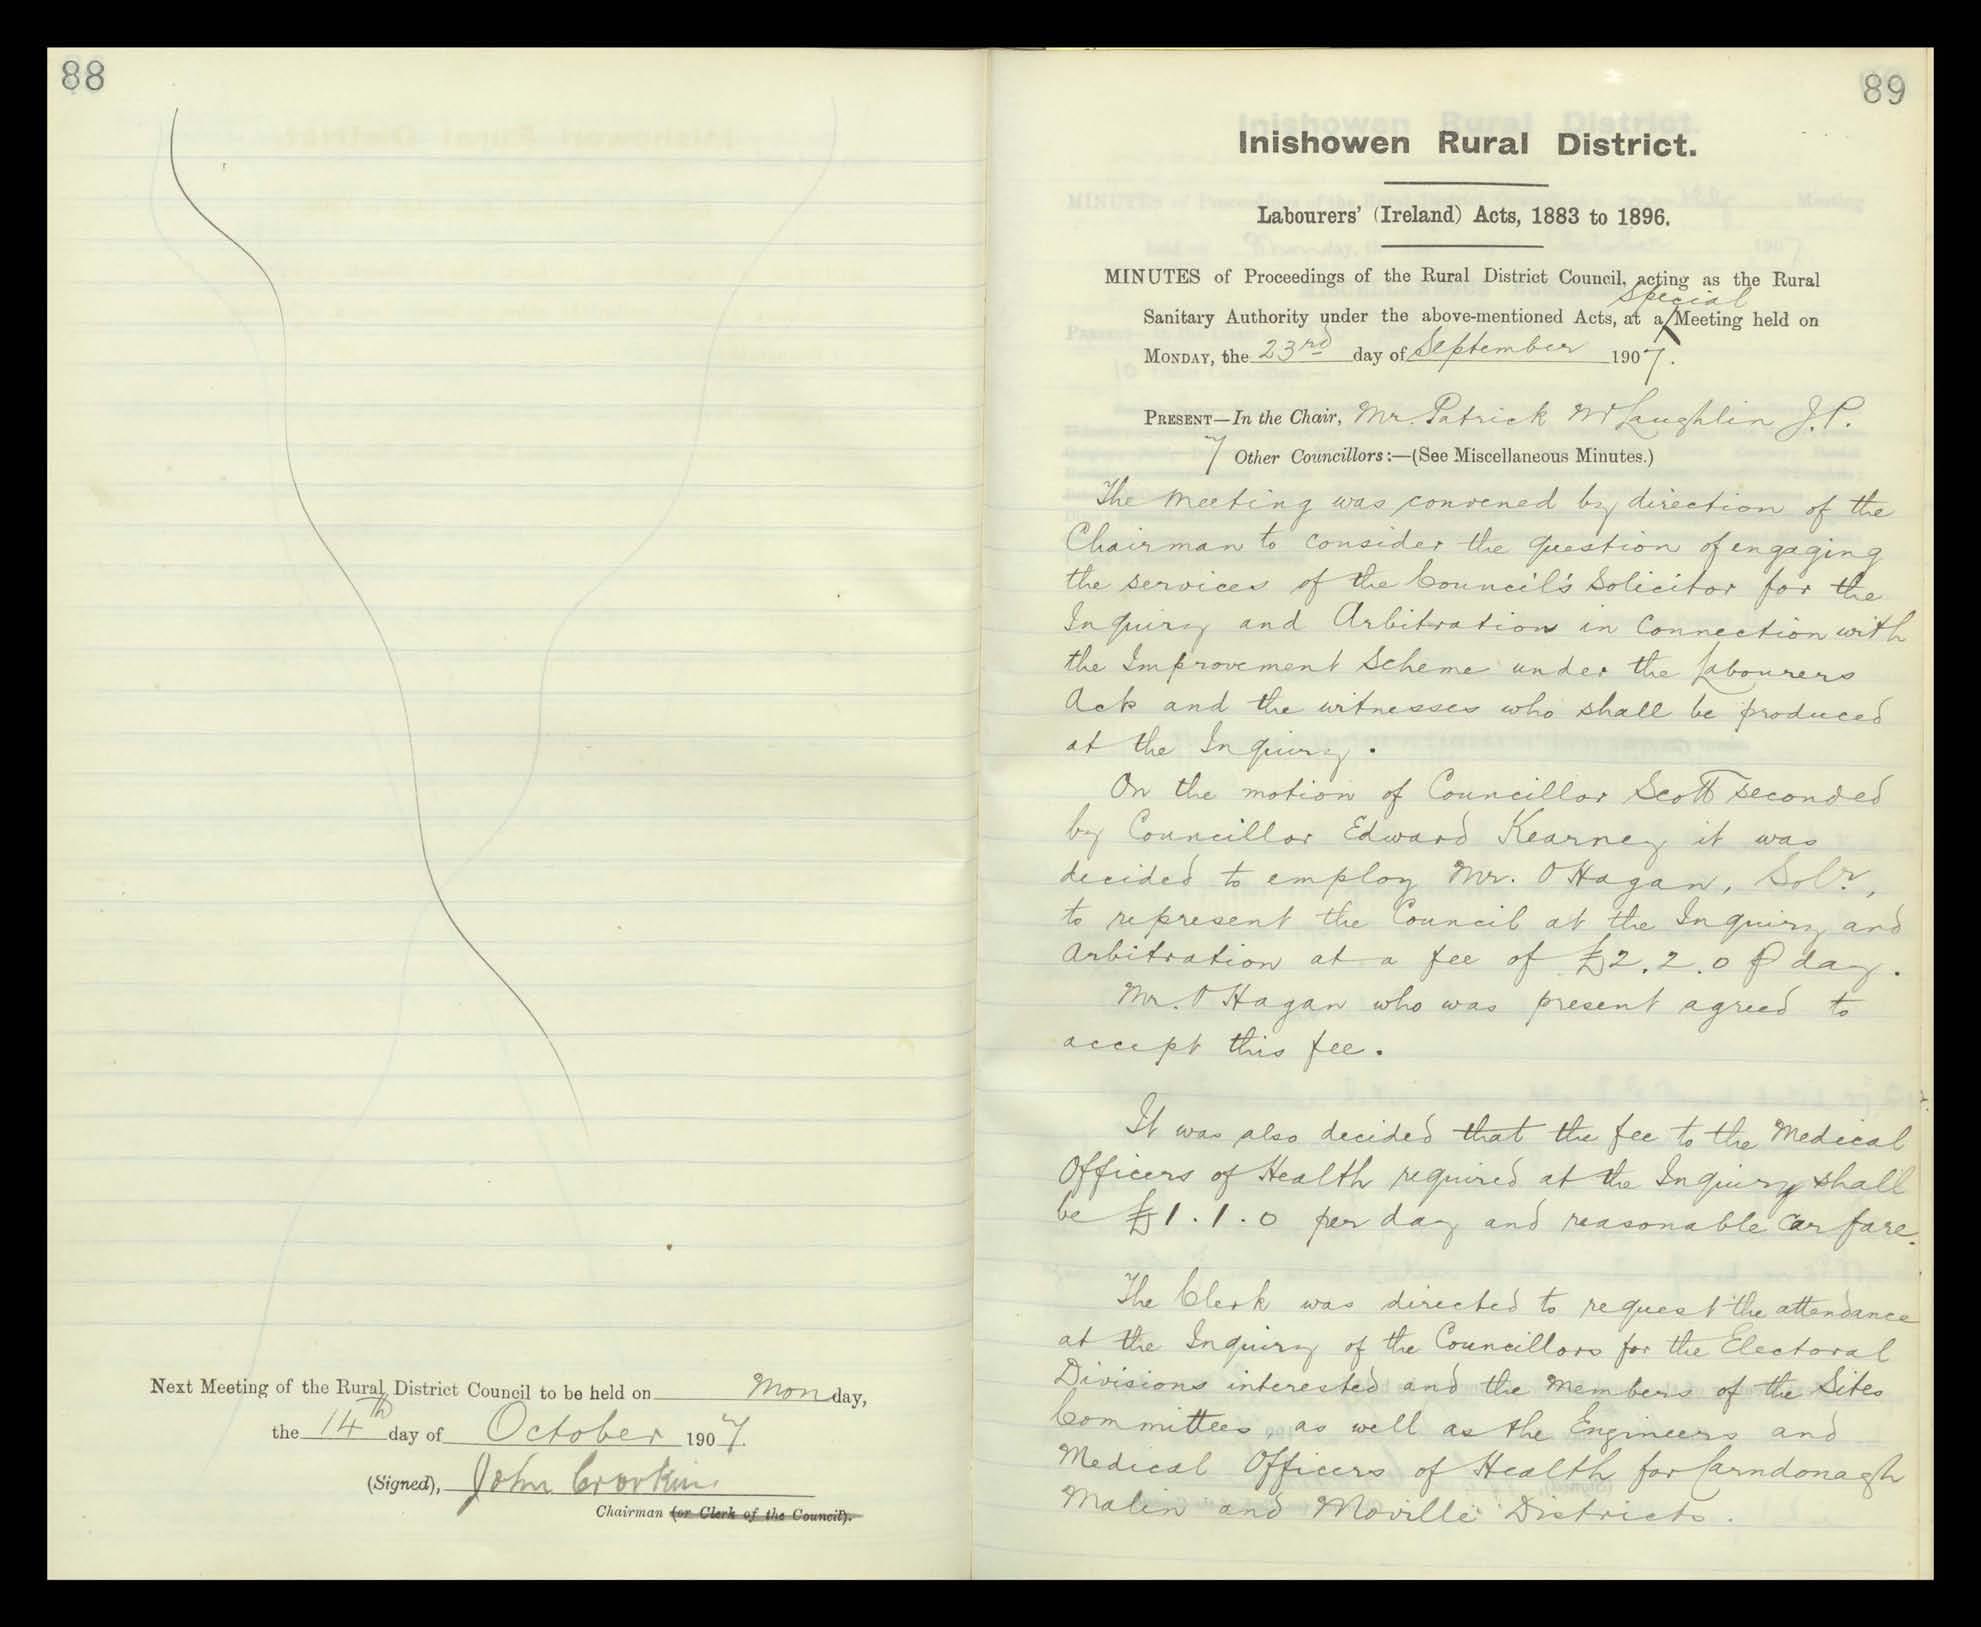 88
Next Meeting of the Rural District Council to be held on Monday,
the 14th day of October 1907.
(Signed), John
Chairman (or Clerk of the Council).
89
Inishowen Rural District.
Labourers' (Ireland) Acts, 1883 to 1896.
MINUTES of Proceedings of the Rural District Council, acting as the Rural
Sanitary Authority under the above-mentioned Acts, at a special Meeting held on
MONDAY, the 23rd day of September 1907.
PRESENT—In the Chair, Mr. Patrick McLaughlin J.P.
7 Other Councillors:—(See Miscellaneous Minutes.)
The meeting was convened by direction of the
Chairman to consider the question of engaging
the services of the Council's Solicitor for the
Inquiry and Arbitration in connection with
the Improvement Scheme under the Labourers
Acts and the witnesses who shall be produced
at the Inquiry.
On the motion of Councillor Scott seconded
by Councillor Edward Kearney it was
decided to employ Mr. O'Hagan, Solr.,
to represent the Council at the Inquiry and
Arbitration at a fee of £2.2.0 ⅌ day.
Mr. O'Hagan who was present agreed to
accept this fee.
It was also decided that the fee to the Medical
Officers of Health required at the Inquiry shall
be £1.1.0 per day and reasonable car fare.
The Clerk was directed to request the attendance
at the Inquiry of the Councillors for the Electoral
Divisions interested and the members of the Sites
Committees, as well as the Engineers and
Medical Officers of Health for Carndonagh
Malin and Moville Districts.